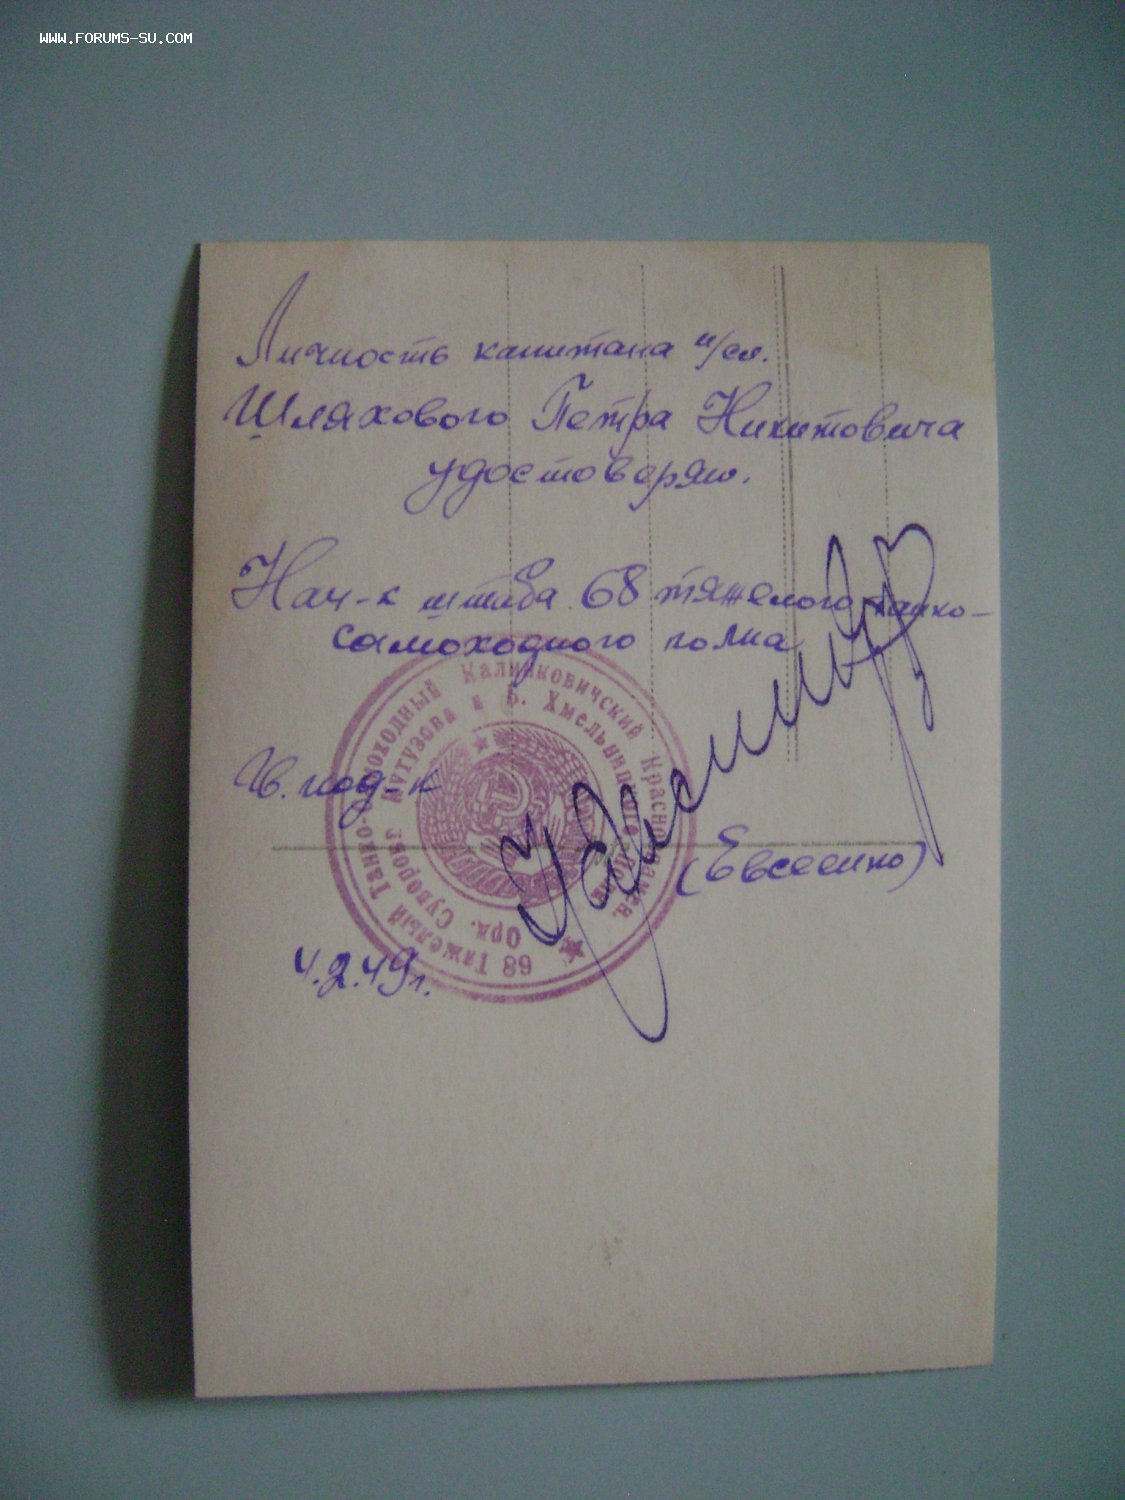 WWW.FORUMS-SU.COM
Личность капитана и/сл.
Шляхового Петра Никитовича
удостоверяю.
Нач-к штаба 68 тяжелого танко-
самоходного полка
Гв. под-к
(Евсеенко)
4.2.49г.
68 Тяжелый Танко-самоходный Калинковичский Краснознамен.
Орд. Суворова Кутузова и Б. Хмельницкого Полк